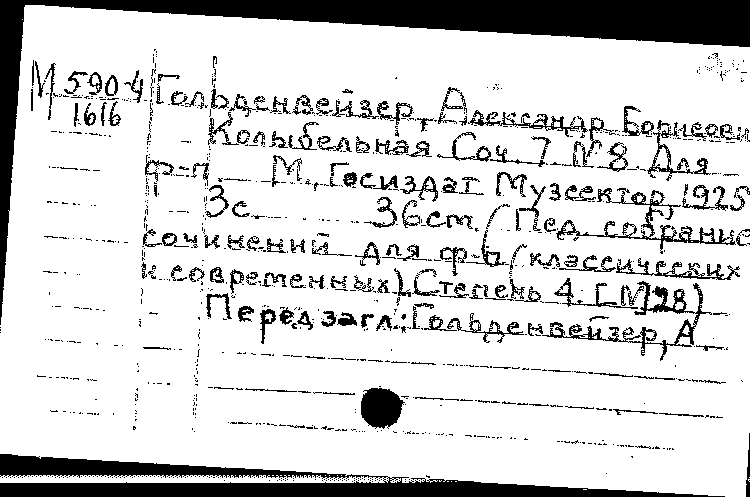 М 590-4
1616
Гольденвейзер, Александр Борисови
Колыбельная. Соч. 7. №8. Для
ф-п. М., Госиздат Музсектор, 1925
3с. 36см. (Пед. собрание
сочинений для ф-п (классических
и современных). Степень 4. [№]28)
Перед загл.: Гольденвейзер, А.